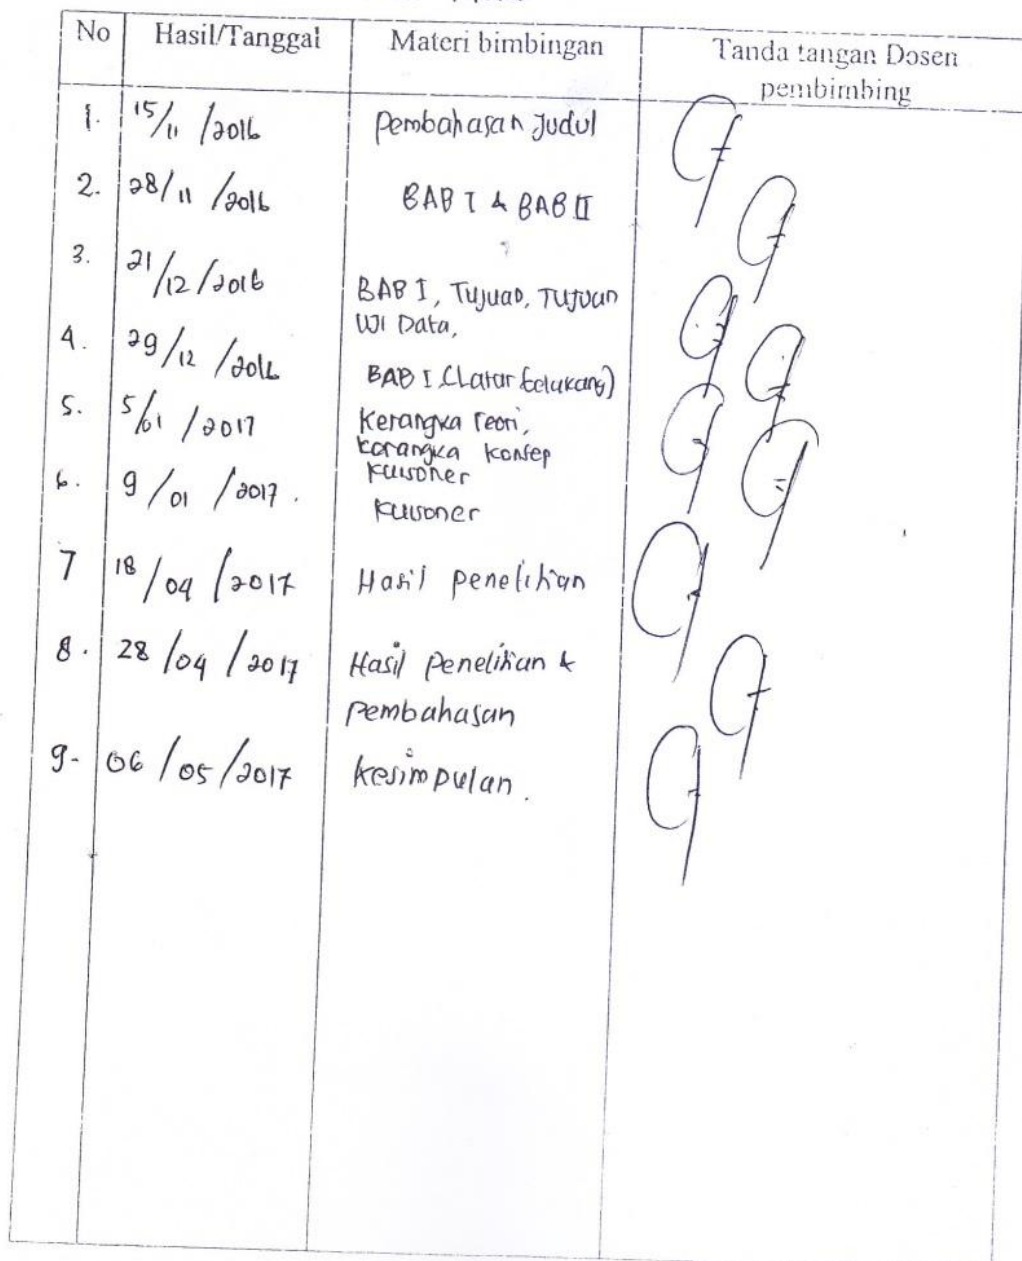 No Hasil/Tanggal Materi bimbingan Tanda tangan Dosen
pembimbing
1. 15/11/2016 Pembahasan Judul
2. 28/11/2016 BAB I & BAB II
3. 21/12/2016 BAB I, Tujuan, Tujuan
Uji Data,
4. 29/12/2016 BAB I (Latar belakang)
5. 5/01/2017 Kerangka Teori,
kerangka konsep
kuisoner
6. 9/01/2017. kuisoner
7 18/04/2017 Hasil penelitian
8. 28/04/2017 Hasil Penelitian &
pembahasan
9. 06/05/2017 kesimpulan.